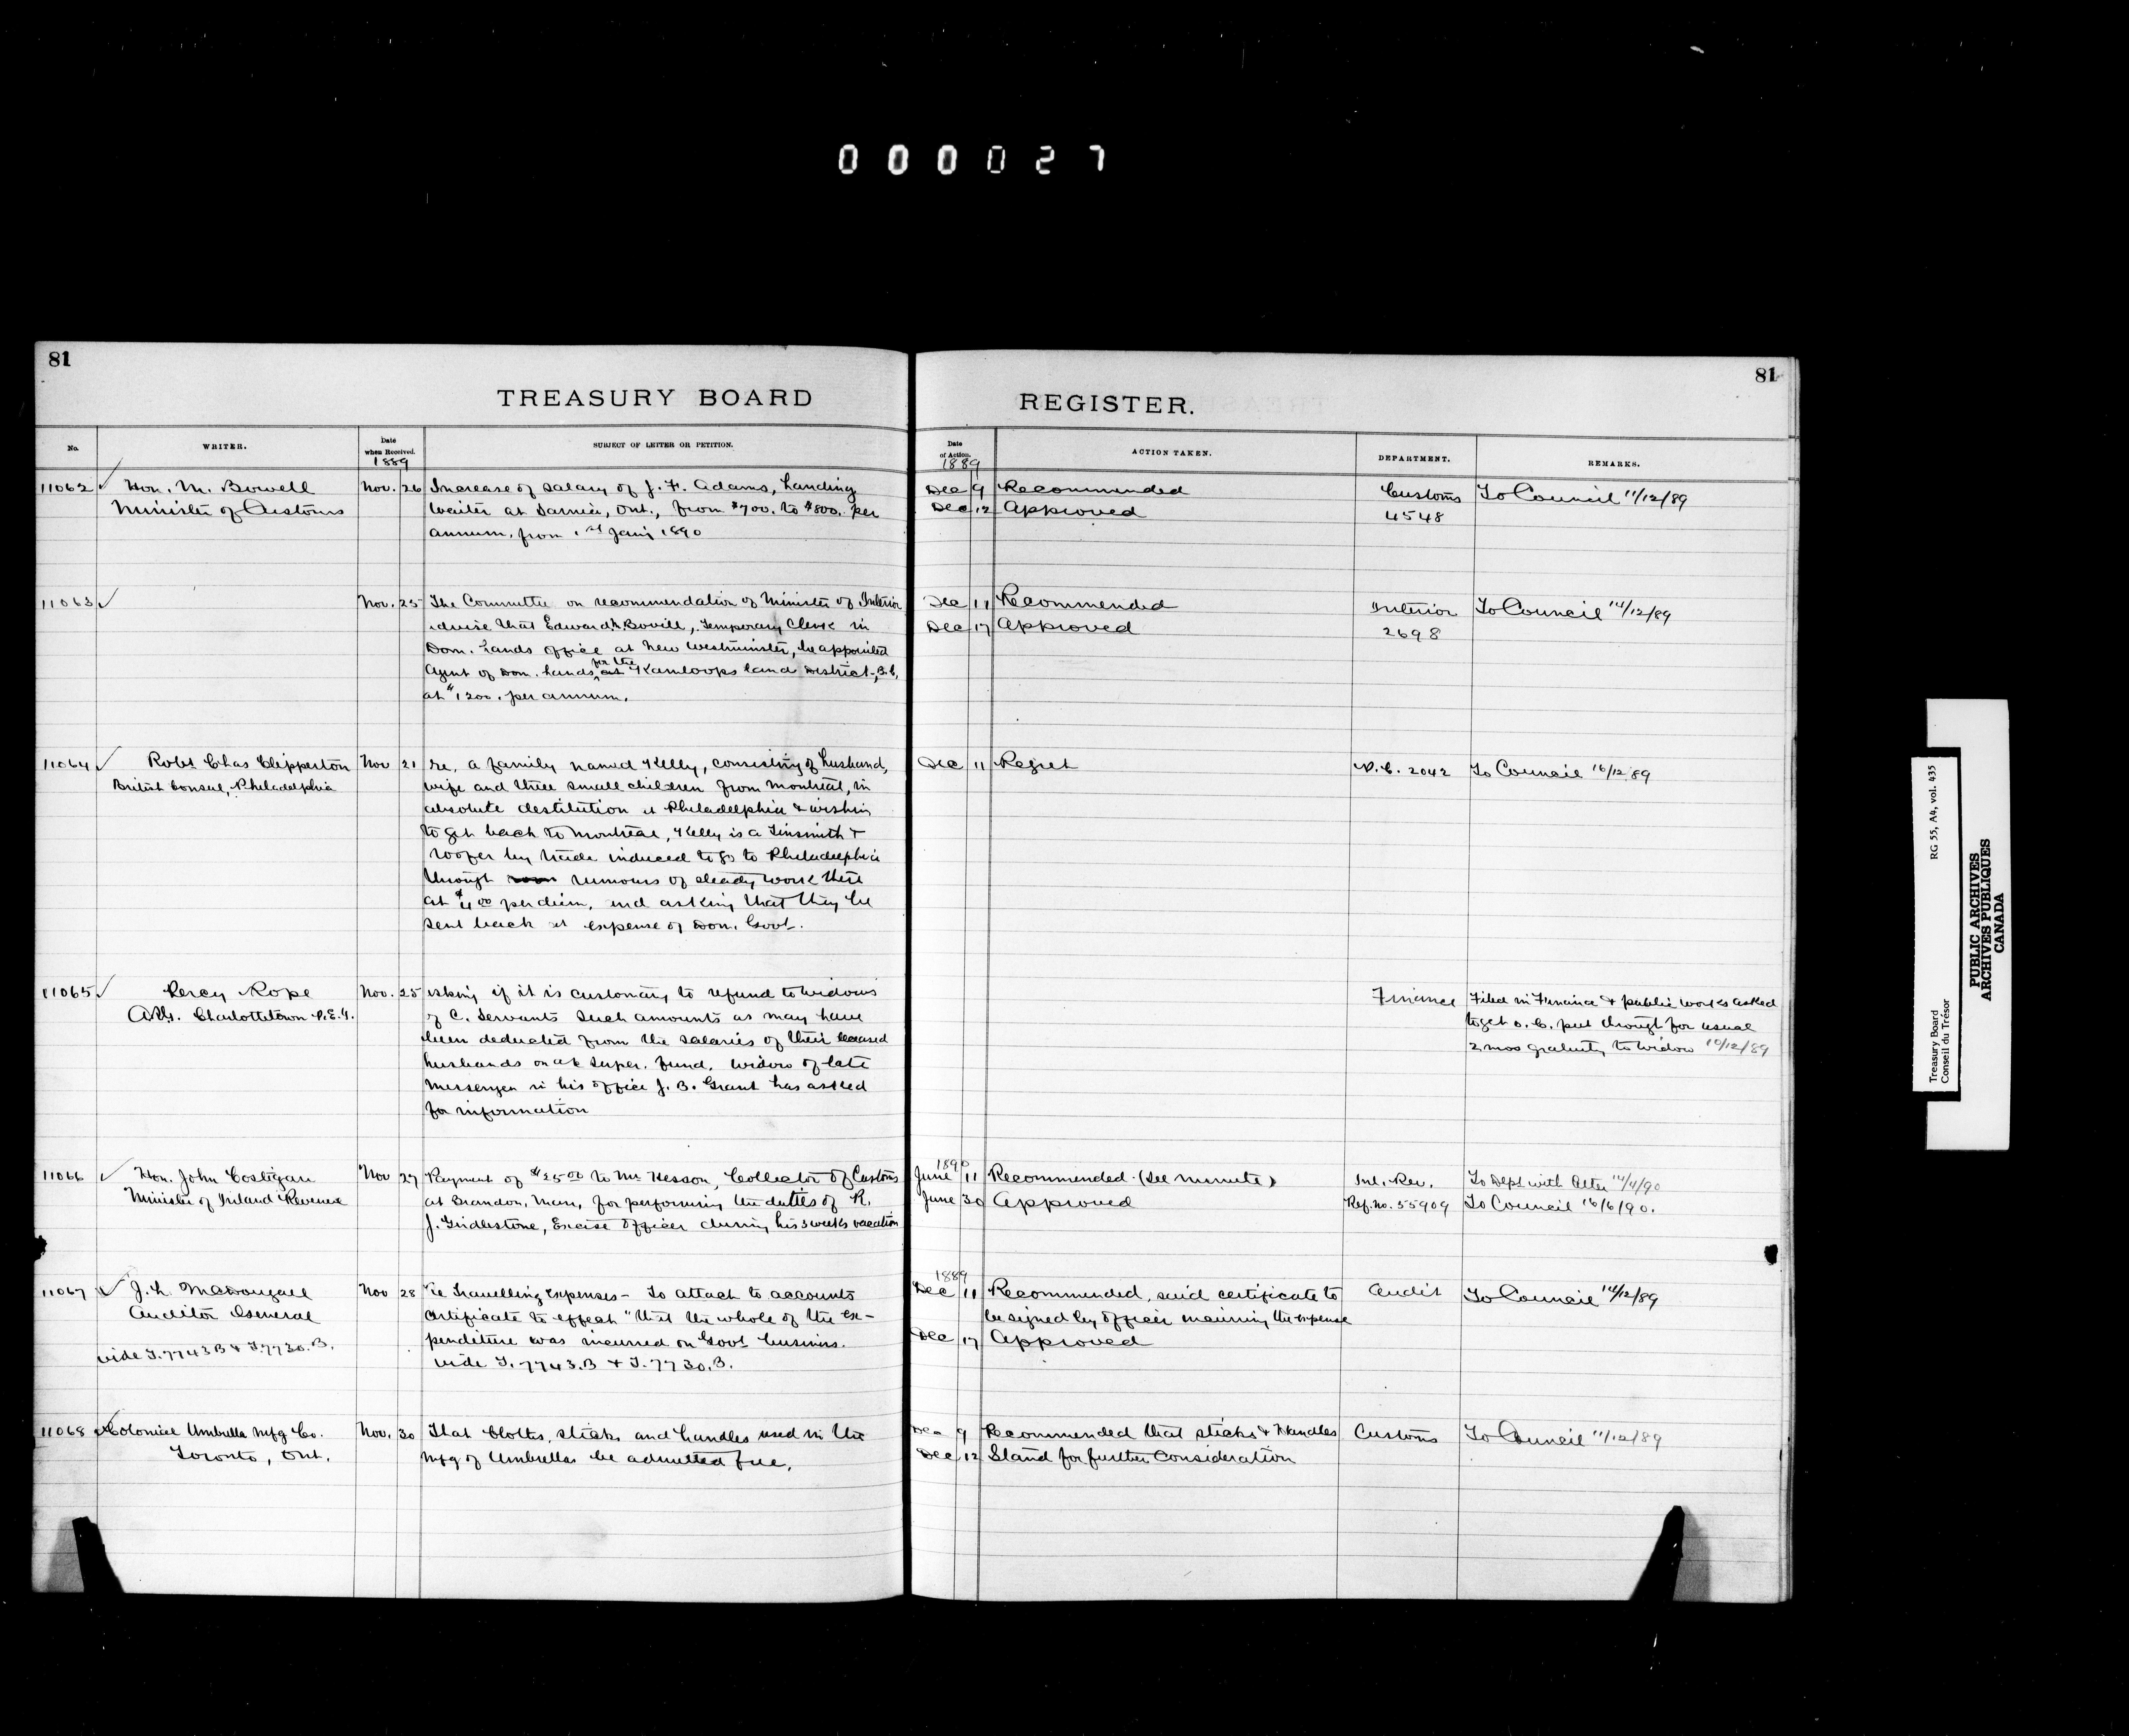 000027
81
81
TREASURY BOARD
REGISTER.
No.
WRITER.
Date when Received. 1889
SUBJECT OF LETTER OR PETITION.
Date of Action. 1889
ACTION TAKEN.
DEPARTMENT.
REMARKS.
11062 ✓ Hon. M. Bowell Nov. 26 Increase of salary of J. F. Adams, Landing Dec 9 Recommended Customs To Council 11/12/89
Minister of Customs Waiter at Sarnia, Ont., from $700. to $800. per Dec 12 Approved 4548
annum, from 1st Jany 1890
11063 ✓ Nov. 25 The Committee on recommendation of Minister of Interior Dec 11 Recommended Interior To Council 14/12/89
advise that Edward A. Bovill, Temporary Clerk in Dec 17 Approved 2698
Dom. Lands Office at New Westminster, be appointed
Agent of Dom. Lands for the Kamloops Land District, B.C.
at $1200. per annum.
11064 ✓ Robt Chas Clipperton Nov 21 re. a family named Kelly, consisting of husband, Dec 11 Regret P.C. 2042 To Council 16/12 89
British Consul, Philadelphia wife and three small children from Montreal, in
absolute destitution at Philadelphia & wishing
to get back to Montreal, Kelly is a Tinsmith &
roofer by trade induced to go to Philadelphia
through rumours of steady work there
at $4.00 per diem, and asking that they be
sent back at expense of Dom. Govt.
11065 ✓ Percy Pope Nov. 25 asking if it is customary to refund to widows Finance Filed in Finance & public works asked
Charlottetown P.E.I. of C. Servants such amounts as may have to get O.C. put through for usual
been deducted from the salaries of their deceased 2 mos gratuity to widow 10/12/89
husbands on a/c Super. Fund. Widow of late
Messenger in his office J. B. Grant has asked
for information
11066 ✓ Hon. John Costigan Nov 27 Payment of $25.00 to Mr Hesson, Collector of Customs 1890 June 11 Recommended (See minute) Inl. Rev. To Dept with letter 14/4/90
Minister of Inland Revenue at Brandon, Man, for performing the duties of R. June 30 Approved Ref. no. 55909 To Council 16/6/90.
J. Girdlestone, Excise Officer during his 3 weeks vacation
11067 ✓ J. L. McDougall Nov 28 re Travelling expenses – To attach to accounts 1889 Dec 11 Recommended, said certificate to Audit To Council 14/12/89
Auditor General certificate to effect "That the whole of the ex- be signed by officer incurring the expense
penditure was incurred on Govt business. Dec 17 Approved
vide T.7743B & T.7730.B. vide T.7743.B & T.7730.B.
11068 ✓ Colonial Umbrella Mfg Co. Nov. 30 That Cloths, sticks and handles used in the Dec 9 Recommended that sticks & Handles Customs To Council 11/12/89
Toronto, Ont. mfg of Umbrellas be admitted free. Dec 12 Stand for further consideration
Treasury Board
Conseil du Trésor
RG 55, A4, vol. 435
PUBLIC ARCHIVES
ARCHIVES PUBLIQUES
CANADA